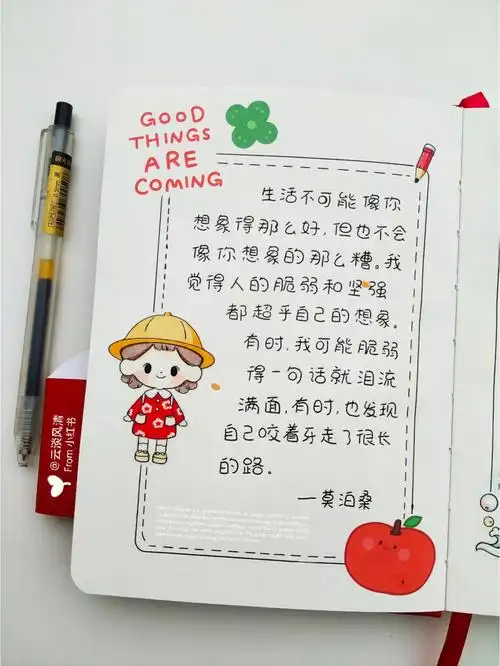 GOOD
THINGS
ARE
COMING
生活不可能像你
想象得那么好,但也不会
像你想象的那么糟。我
觉得人的脆弱和坚强
都超乎自己的想象。
有时,我可能脆弱
得一句话就泪流
满面,有时,也发现
自己咬着牙走了很长
的路。
—莫泊桑
@云淡风清
From 小红书